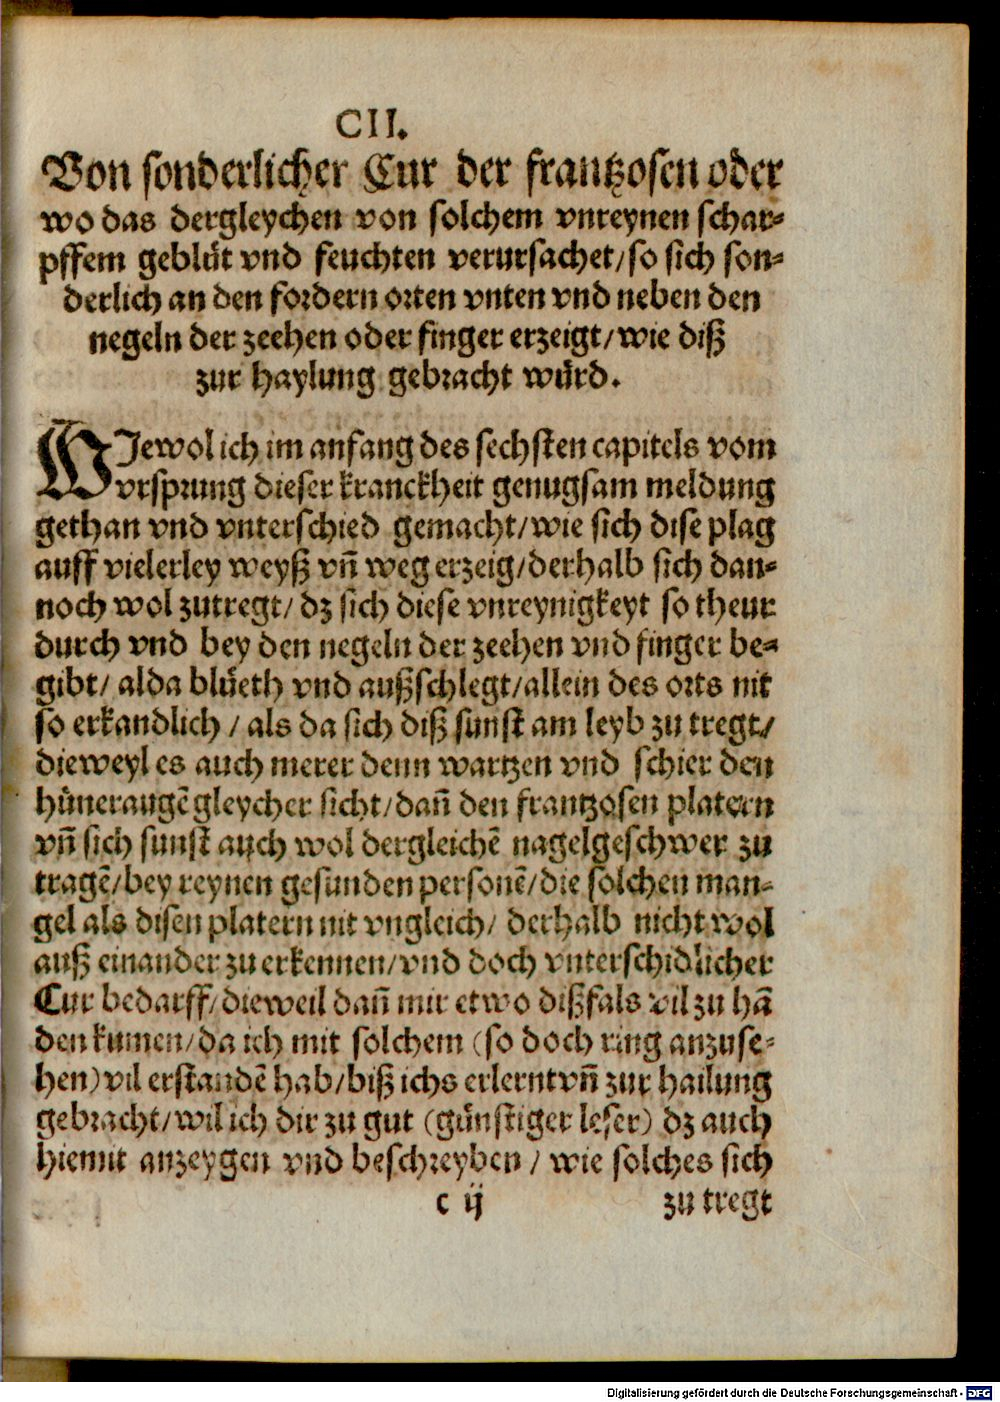 CII.
Von sonderlicher Cur der frantzosen oder
wo das dergleychen von solchem vnreynen schar-
pffem geblüt vnd feuchten verursachet/so sich son-
derlich an den fordern orten vnten vnd neben den
negeln der zeehen oder finger erzeigt/wie diß
zur haylung gebracht würd.
WJewol ich im anfang des sechsten capitels vom
vrsprung dieser kranckheit genugsam meldung
gethan vnd vnterschied gemacht/wie sich dise plag
auff vielerley weyß vñ weg erzeig/derhalb sich dan-
noch wol zutregt/dz sich diese vnreynigkeyt so theur
durch vnd bey den negeln der zeehen vnd finger be-
gibt/ alda blüeth vnd außschlegt/allein des orts nit
so erkandlich / als da sich diß sunst am leyb zu tregt/
dieweyl es auch merer denn wartzen vnd schier den
hüneraugē gleycher sicht/dañ den frantzosen platern
vñ sich sunst auch wol dergleichē nagelgeschwer zu
tragē/bey reynen gesunden personē/die solchen man-
gel als disen platern nit vngleich/ derhalb nicht wol
auß einander zu erkennen/vnd doch vnterschidlicher
Cur bedarff/dieweil dañ mir etwo dißfals vil zu hā
den kumen/da ich mit solchem (so doch ring anzuse-
hen) vil erstandē hab/biß ichs erlernt vñ zur hailung
gebracht/wil ich dir zu gut (günstiger leser) dz auch
hiemit anzeygen vnd beschreyben / wie solches sich
c ij zu tregt
Digitalisierung gefördert durch die Deutsche Forschungsgemeinschaft - DFG